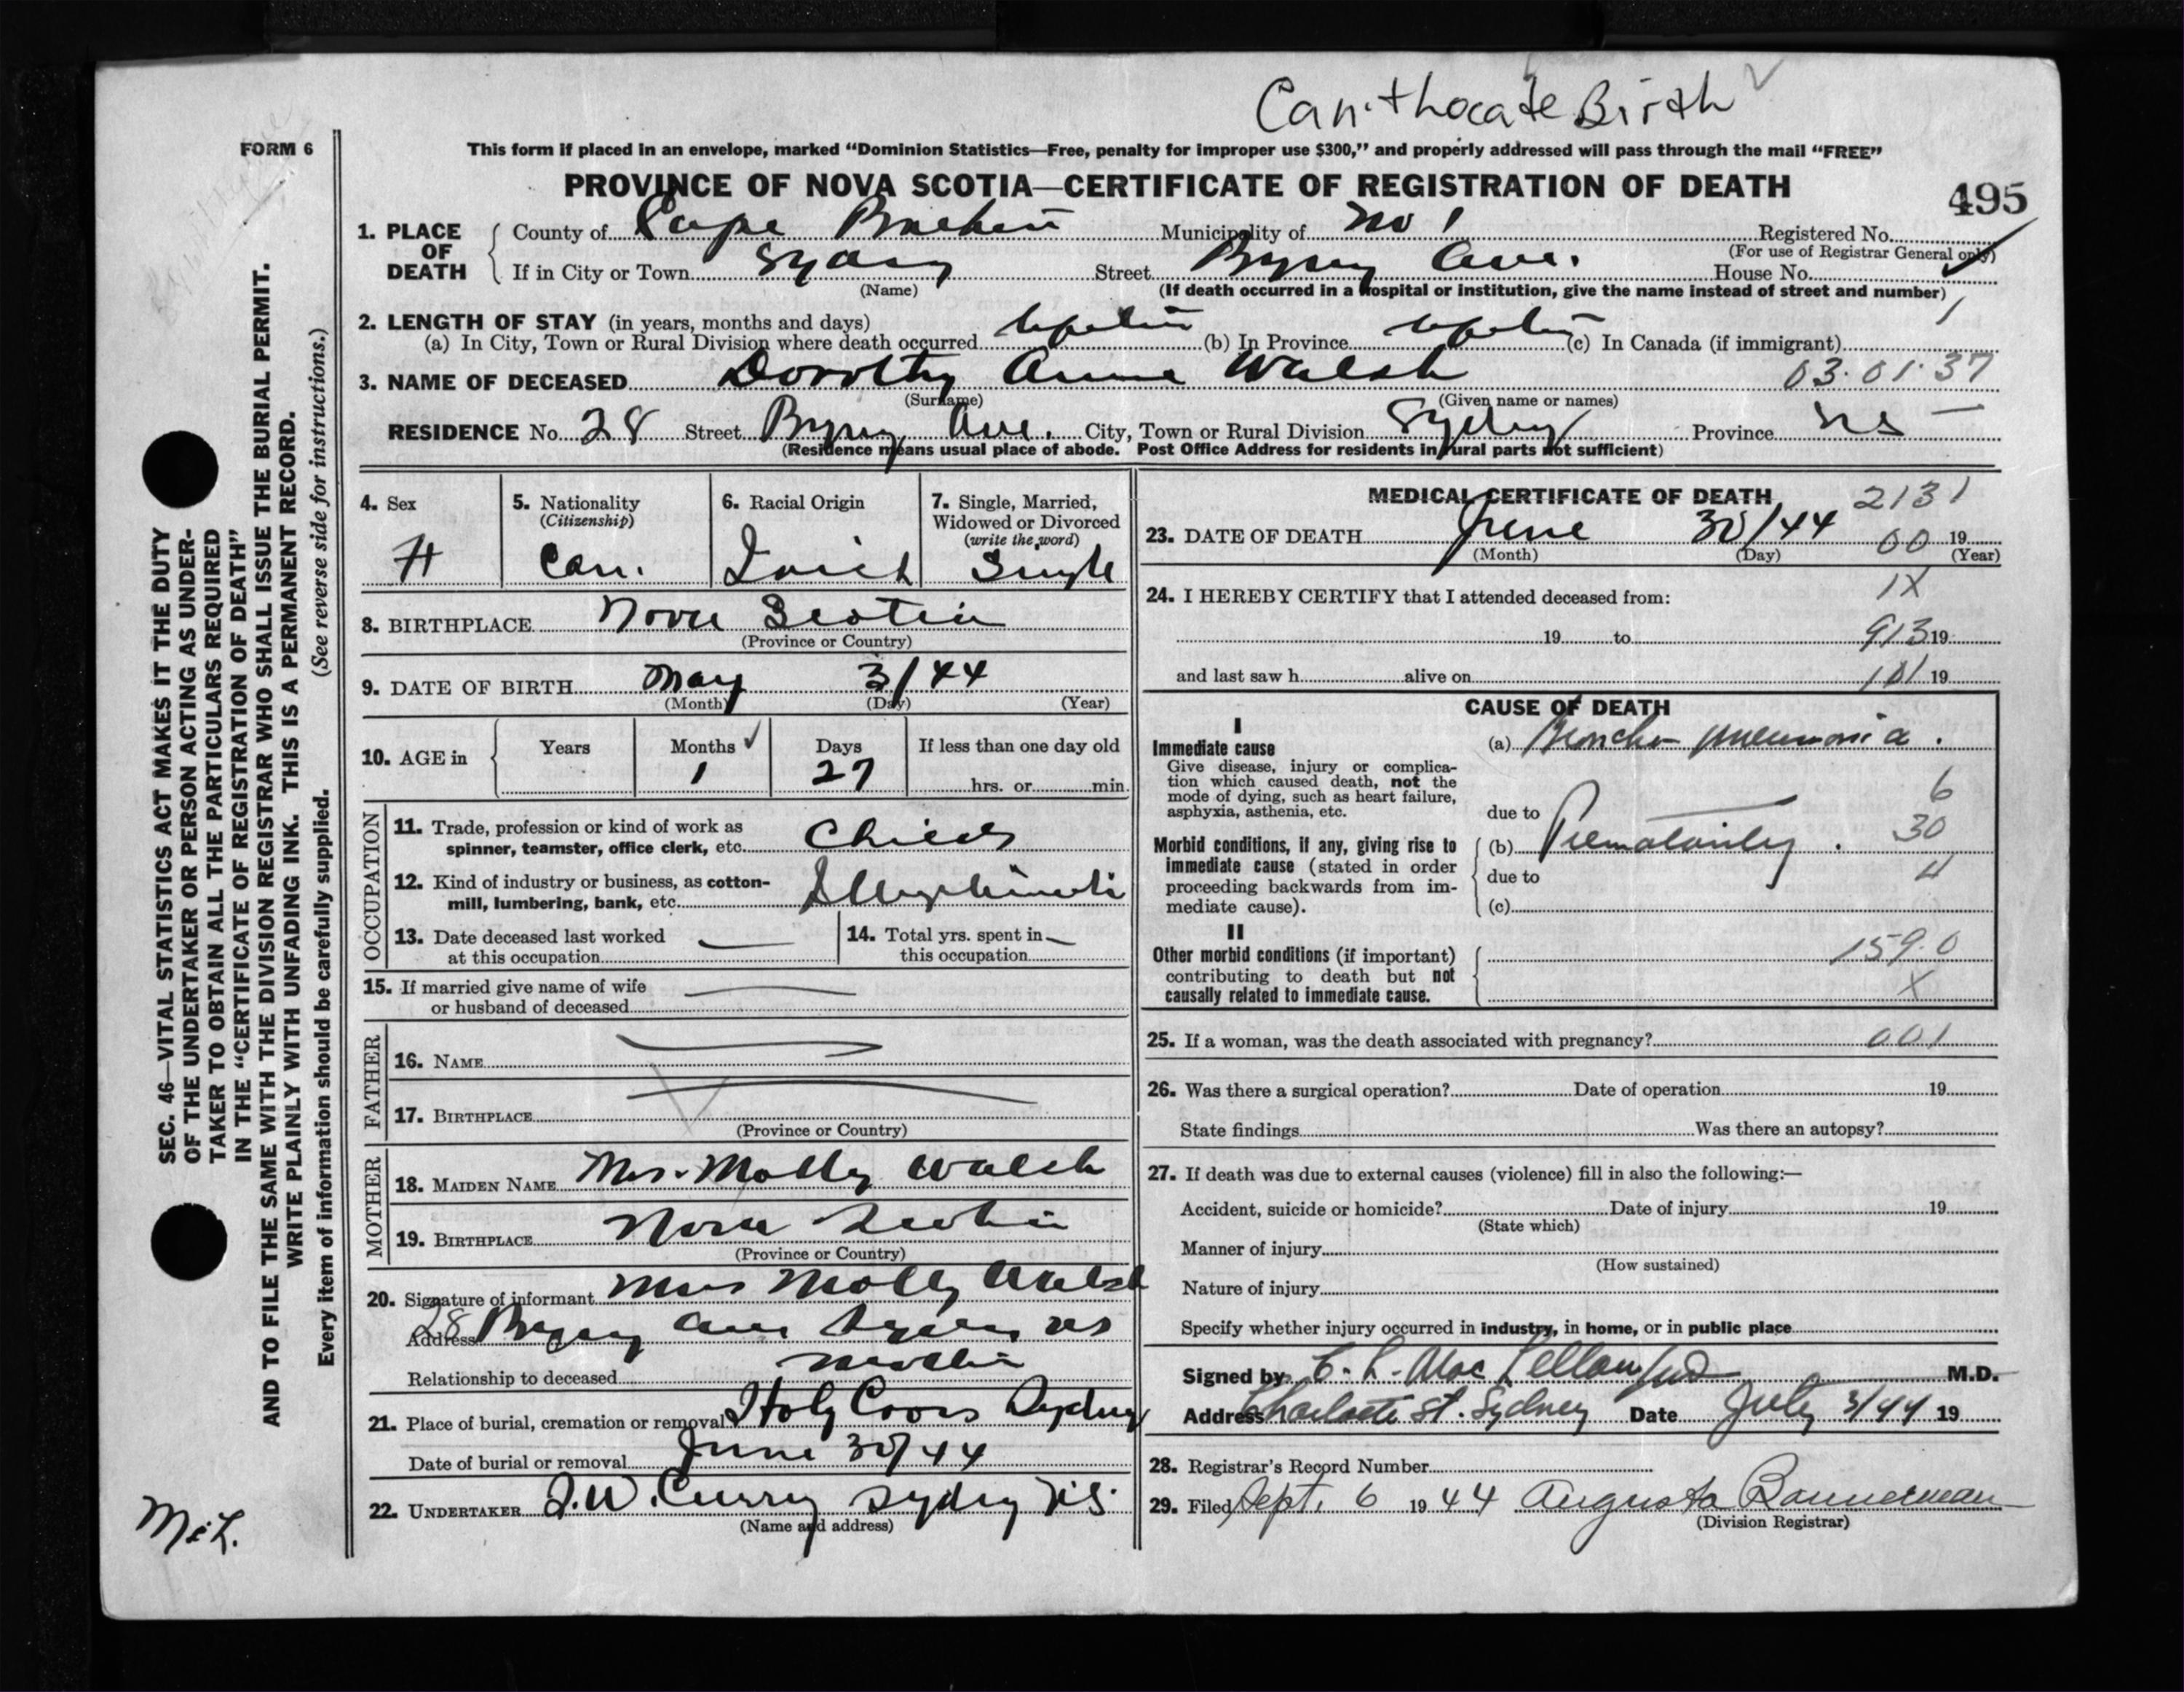 Can't locate Birth ✓
FORM 6
This form if placed in an envelope, marked “Dominion Statistics—Free, penalty for improper use $300,” and properly addressed will pass through the mail “FREE”
PROVINCE OF NOVA SCOTIA—CERTIFICATE OF REGISTRATION OF DEATH
495
1. PLACE OF DEATH
County of Cape Breton Municipality of No 1 Registered No.
(For use of Registrar General only)
If in City or Town Sydney Street Byng Ave. House No.
(Name) (If death occurred in a hospital or institution, give the name instead of street and number)
2. LENGTH OF STAY (in years, months and days) 1
(a) In City, Town or Rural Division where death occurred lifetime (b) In Province lifetime (c) In Canada (if immigrant)
3. NAME OF DECEASED Dorothy Anne Walsh 03.01.37
(Surname) (Given name or names)
RESIDENCE No. 28 Street Byng Ave. City, Town or Rural Division Sydney Province NS
(Residence means usual place of abode. Post Office Address for residents in rural parts not sufficient)
4. Sex
5. Nationality (Citizenship) Can.
6. Racial Origin Irish
7. Single, Married, Widowed or Divorced (write the word) Single
8. BIRTHPLACE Nova Scotia
(Province or Country)
9. DATE OF BIRTH May 3/44
(Month) (Day) (Year)
10. AGE in Years Months ✓ 1 Days 27 If less than one day old hrs. or min.
OCCUPATION
11. Trade, profession or kind of work as spinner, teamster, office clerk, etc. Child
12. Kind of industry or business, as cotton-mill, lumbering, bank, etc.
13. Date deceased last worked at this occupation —
14. Total yrs. spent in this occupation —
15. If married give name of wife or husband of deceased —
FATHER
16. NAME —
17. BIRTHPLACE —
(Province or Country)
MOTHER
18. MAIDEN NAME Mrs. Molly Walsh
19. BIRTHPLACE Nova Scotia
(Province or Country)
20. Signature of informant Mrs Molly Walsh
Address 28 Byng Ave Sydney NS
Relationship to deceased Mother
21. Place of burial, cremation or removal Holy Cross Sydney
Date of burial or removal June 30/44
22. UNDERTAKER J.W. Curry Sydney N.S.
(Name and address)
MEDICAL CERTIFICATE OF DEATH 2131
23. DATE OF DEATH June 30/44 00 19
(Month) (Day) (Year)
24. I HEREBY CERTIFY that I attended deceased from: 1X
19 to 913 19
and last saw h alive on 101 19
CAUSE OF DEATH
I
Immediate cause (a) Broncho pneumonia.
Give disease, injury or complication which caused death, not the mode of dying, such as heart failure, asphyxia, asthenia, etc.
6
due to
30
Morbid conditions, if any, giving rise to immediate cause (stated in order proceeding backwards from immediate cause).
(b) Prematurity.
due to 4
(c)
II
Other morbid conditions (if important) contributing to death but not causally related to immediate cause.
159.0
X
25. If a woman, was the death associated with pregnancy? 001
26. Was there a surgical operation? Date of operation 19
State findings Was there an autopsy?
27. If death was due to external causes (violence) fill in also the following:—
Accident, suicide or homicide? Date of injury 19
(State which)
Manner of injury
(How sustained)
Nature of injury
Specify whether injury occurred in industry, in home, or in public place
Signed by C. L. MacLellan M.D.
Address Charlotte St. Sydney Date July 3/44 19
28. Registrar's Record Number
29. Filed Sept. 6 1944 Augusta Bannerman
(Division Registrar)
SEC. 46—VITAL STATISTICS ACT MAKES IT THE DUTY
OF THE UNDERTAKER OR PERSON ACTING AS UNDER-
TAKER TO OBTAIN ALL THE PARTICULARS REQUIRED
IN THE “CERTIFICATE OF REGISTRATION OF DEATH”
AND TO FILE THE SAME WITH THE DIVISION REGISTRAR WHO SHALL ISSUE THE BURIAL PERMIT.
WRITE PLAINLY WITH UNFADING INK. THIS IS A PERMANENT RECORD.
Every item of information should be carefully supplied. (See reverse side for instructions.)
McL.